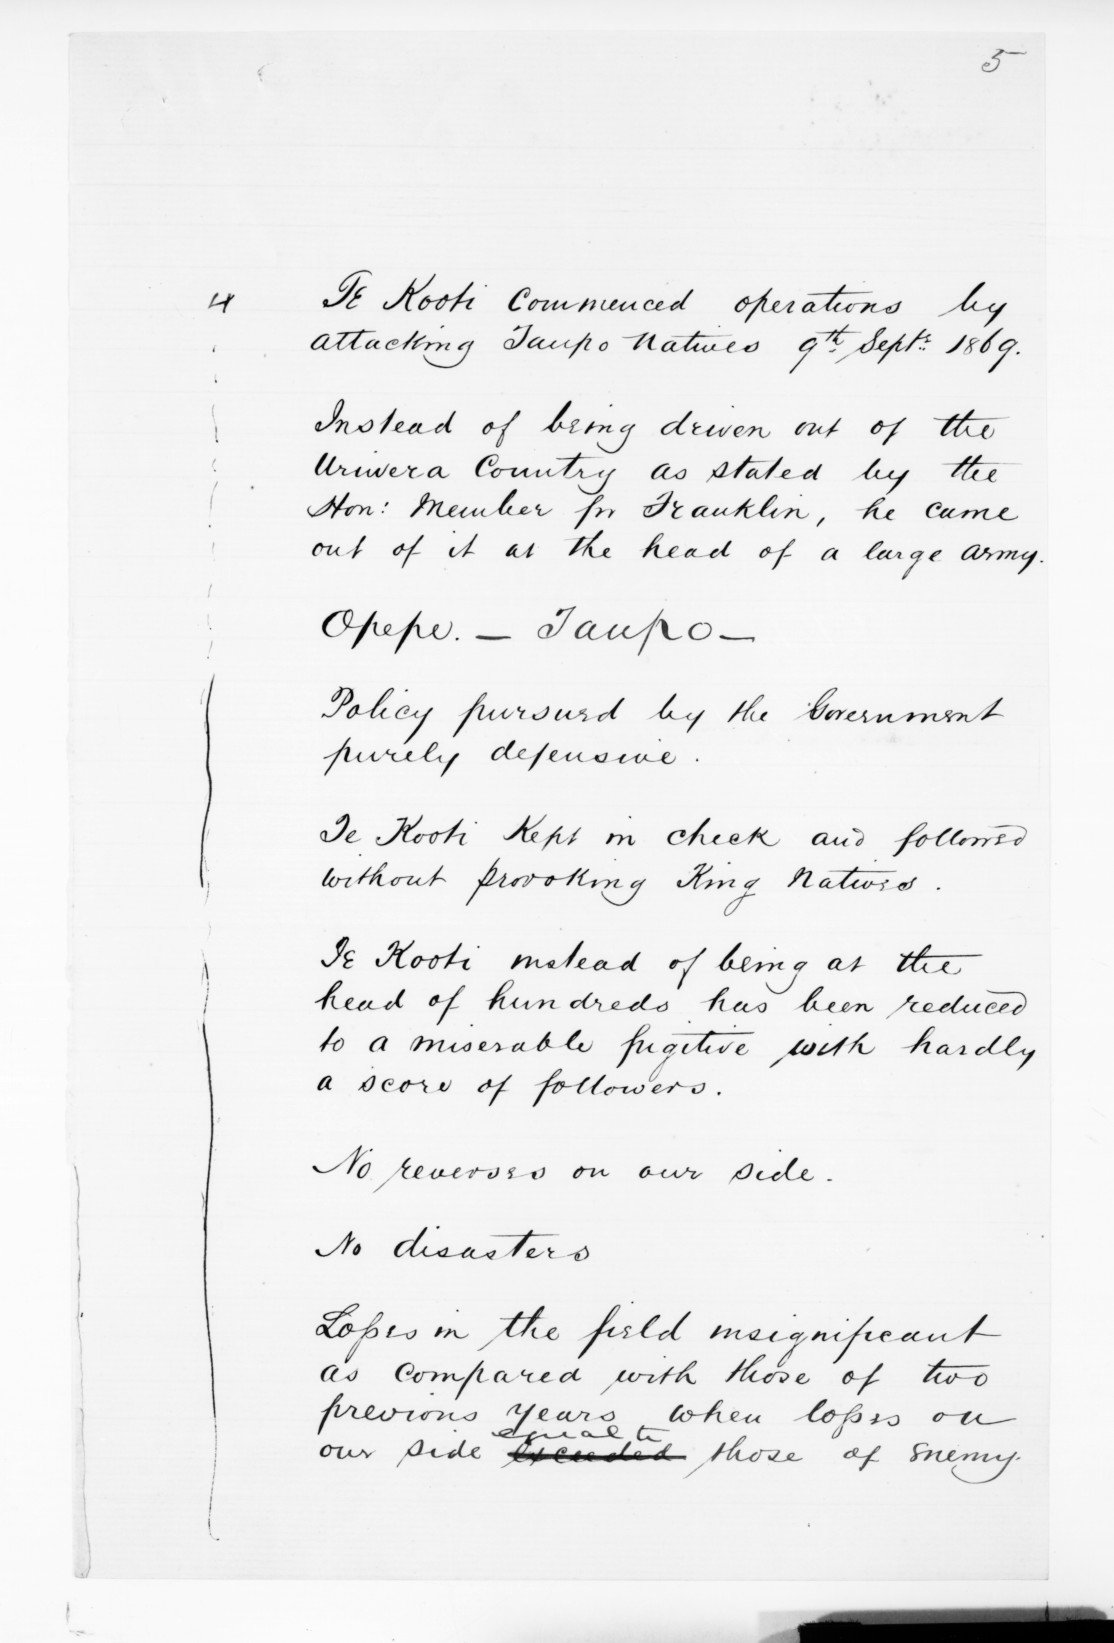 5
4 Te Kooti Commenced operations by
attacking Taupo Natives 9th Septr: 1869.
Instead of being driven out of the
Uriwera Country as stated by the
Hon: Member for Franklin, he came
out of it at the head of a large army.
Opepe. — Taupo —
Policy pursued by the Government
purely defensive.
Te Kooti Kept in check and followed
without provoking King Natives.
Te Kooti instead of being at the
head of hundreds has been reduced
to a miserable fugitive with hardly
a score of followers.
No reverses on our side.
No disasters
Losses in the field insignificant
as compared with those of two
previous years when losses on
equal to
our side exceeded those of enemy.